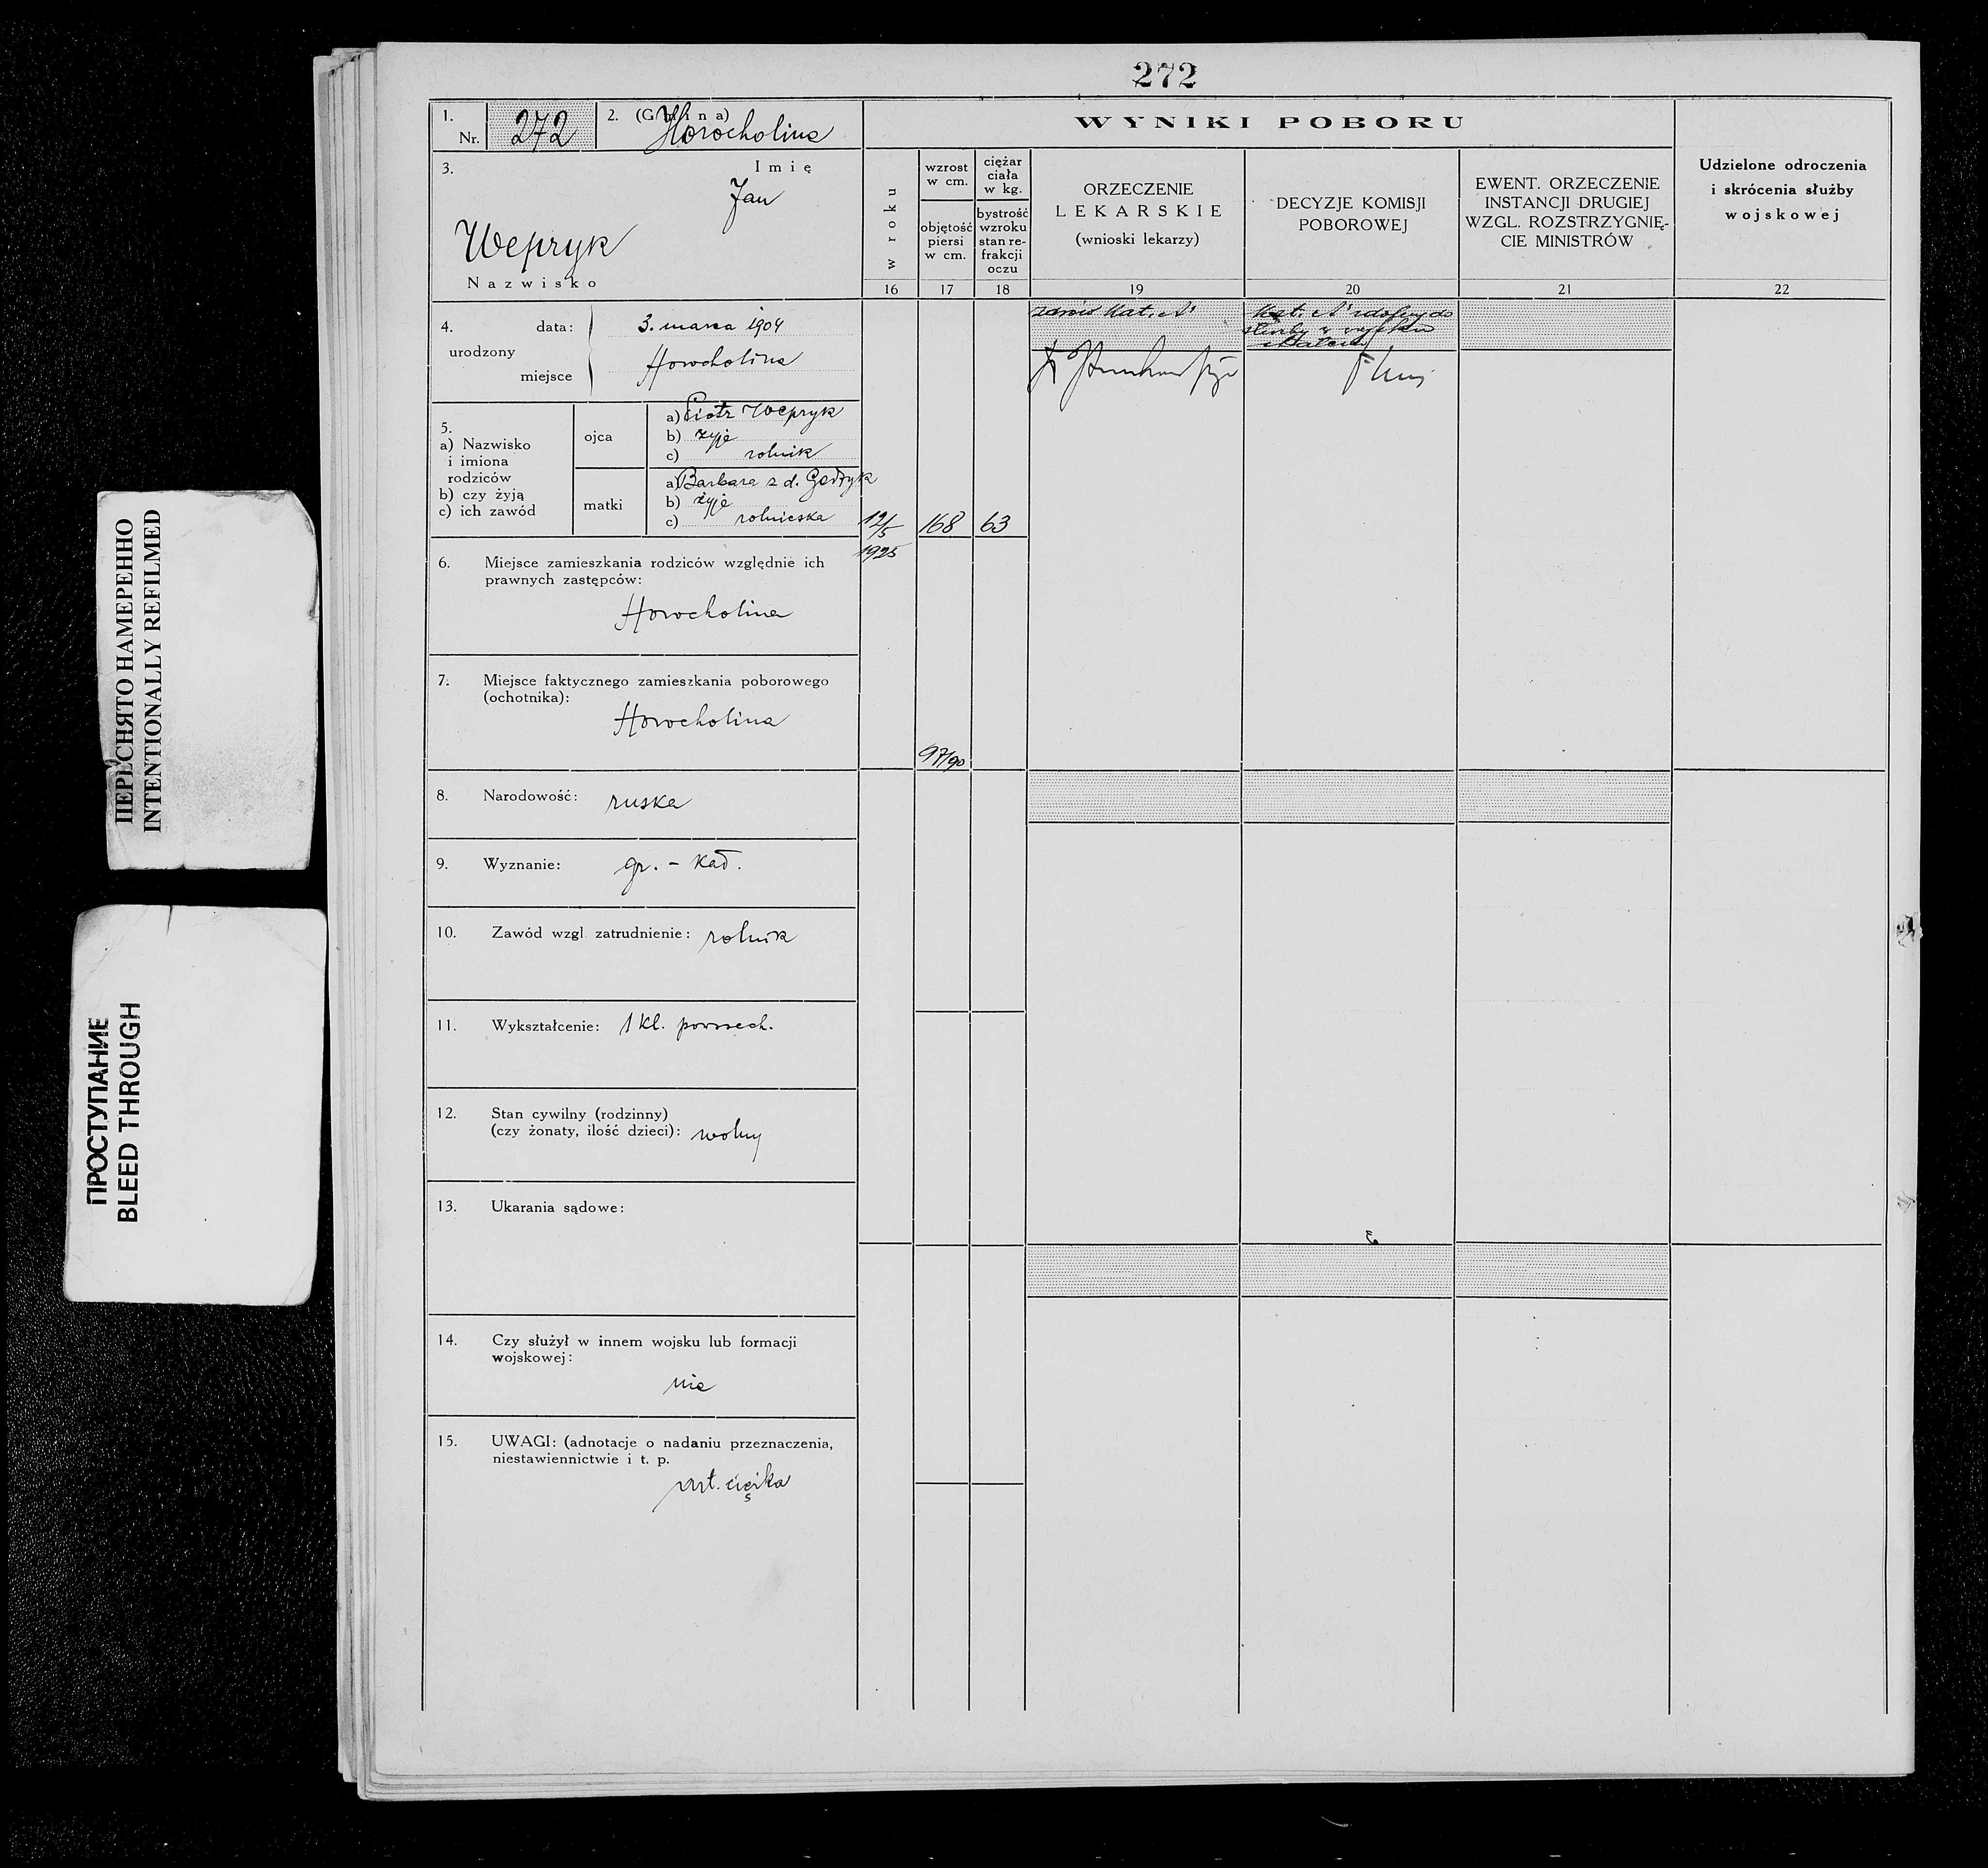 272
1.
Nr. 272
2. (Gmina)
Horocholina
3.
Imię
Jan
Wepryk
Nazwisko
4. urodzony
data: 3. marca 1904
miejsce Horocholina
5.
a) Nazwisko
i imiona
rodziców
b) czy żyją
c) ich zawód
ojca
a) Piotr Wepryk
b) żyje
c) rolnik
matki
a) Barbara z d.
b) żyje
c) rolniczka
6. Miejsce zamieszkania rodziców względnie ich
prawnych zastępców:
Horocholina
7. Miejsce faktycznego zamieszkania poborowego
(ochotnika):
Horocholina
8. Narodowość: ruska
9. Wyznanie: gr. - kat.
10. Zawód wzgl zatrudnienie: rolnik
11. Wykształcenie: 1 kl. powszech.
12. Stan cywilny (rodzinny)
(czy żonaty, ilość dzieci): wolny
13. Ukarania sądowe:
14. Czy służył w innem wojsku lub formacji
wojskowej:
nie
15. UWAGI: (adnotacje o nadaniu przeznaczenia,
niestawiennictwie i t. p.
art. ciężka
WYNIKI POBORU
w roku
16
wzrost
w cm.
objętość
piersi
w cm.
17
ciężar
ciała
w kg.
bystrość
wzroku
stan re-
frakcji
oczu
18
ORZECZENIE
LEKARSKIE
(wnioski lekarzy)
19
DECYZJE KOMISJI
POBOROWEJ
20
EWENT. ORZECZENIE
INSTANCJI DRUGIEJ
WZGL. ROZSTRZYGNIĘ-
CIE MINISTRÓW
21
Udzielone odroczenia
i skrócenia służby
wojskowej
22
12/5
1925
168
63
97/90
Kat. A
Kat. A zdolny do
służby w wojsku
ПЕРЕСНЯТО НАМЕРЕННО
INTENTIONALLY REFILMED
ПРОСТУПАНИЕ
BLEED THROUGH